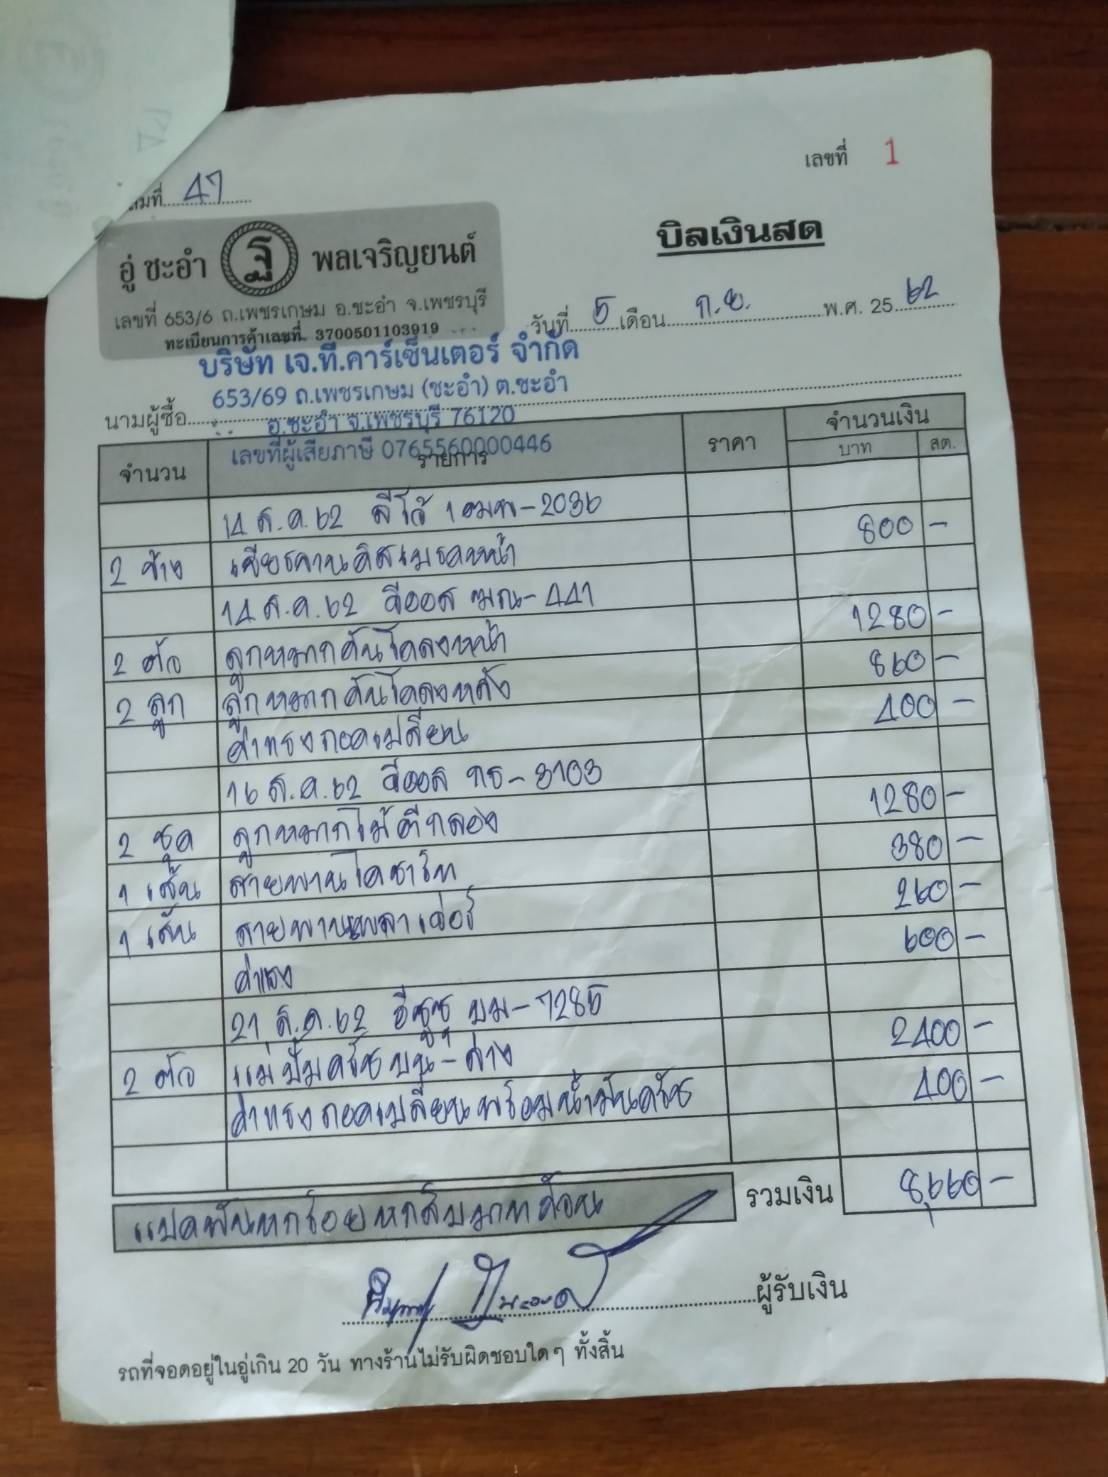 เลขที่ 1
ล่มที่ 47
บิลเงินสด
อู่ ชะอำ ฐ พลเจริญยนต์
เลขที่ 653/6 ถ.เพชรเกษม อ.ชะอำ จ.เพชรบุรี
ทะเบียนการค้าเลขที่ 3700501103919
วันที่ 5 เดือน ก.ย. พ.ศ. 25 62
บริษัท เจ.ที.คาร์เซ็นเตอร์ จำกัด
653/69 ถ.เพชรเกษม (ชะอำ) ต.ชะอำ
นามผู้ซื้อ อ.ชะอำ จ.เพชรบุรี 76120
เลขที่ผู้เสียภาษี 0765560000446
จำนวน รายการ ราคา จำนวนเงิน
บาท สต.
14 ส.ค. 62 รีโว้ 1 ฒฬ-2036
2 ข้าง เจียรจานดิสเบรคหน้า 800 -
14 ส.ค. 62 วีออส ฆณ-441
2 ตัว ลูกหมากกันโคลงหน้า 1280 -
2 ลูก ลูกหมากกันโคลงหลัง 860 -
ค่าแรงถอดเปลี่ยน 400 -
16 ส.ค. 62 วีออส กธ-3103
2 ชุด ลูกหมากไม้ตีกลอง 1280 -
1 เส้น สายพานไดชาร์ท 380 -
1 เส้น สายพานเพาเวอร์ 260 -
ค่าแรง 600 -
21 ส.ค. 62 อีซูซุ บม-7285
2 ตัว แม่ปั๊มครัชบน-ล่าง 2400 -
ค่าแรงถอดเปลี่ยนพร้อมน้ำมันครัช 400 -
แปดพันหกร้อยหกสิบบาทถ้วน รวมเงิน 8,660 -
ผู้รับเงิน
รถที่จอดอยู่ในอู่เกิน 20 วัน ทางร้านไม่รับผิดชอบใดๆ ทั้งสิ้น